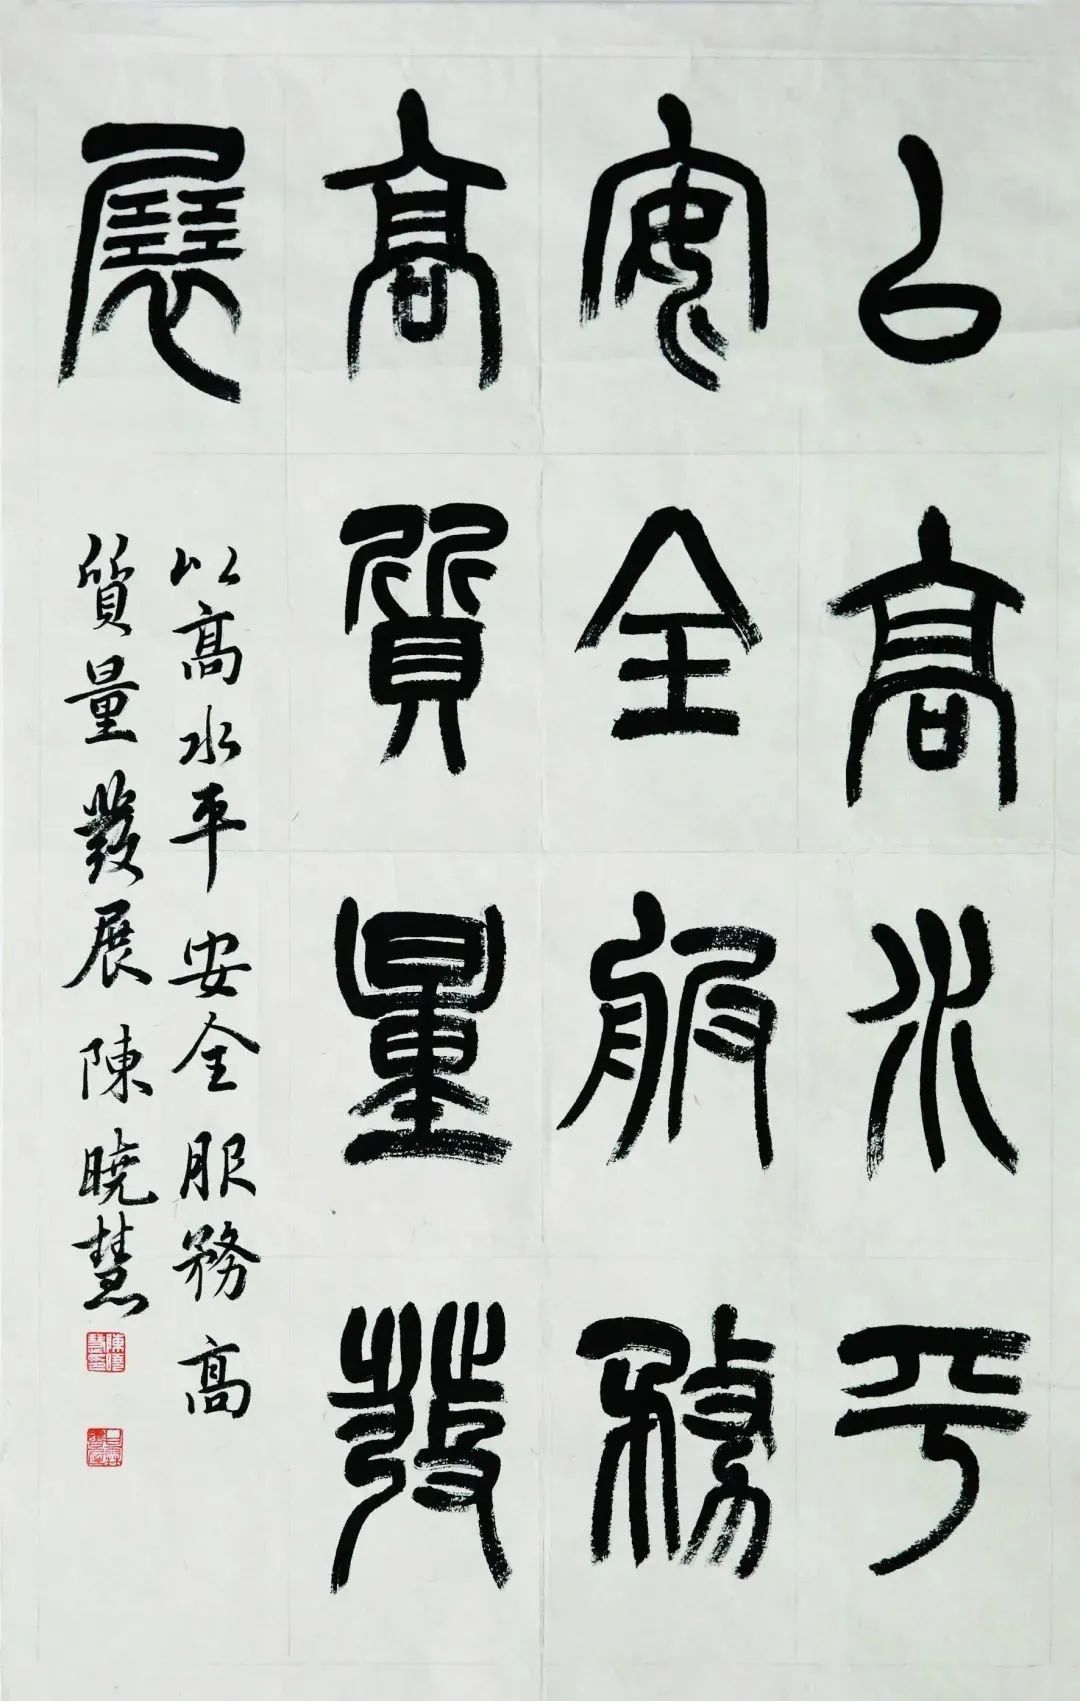 以高水平
安全服務
高質量發
展
以高水平安全服務高
質量發展 陳曉慧